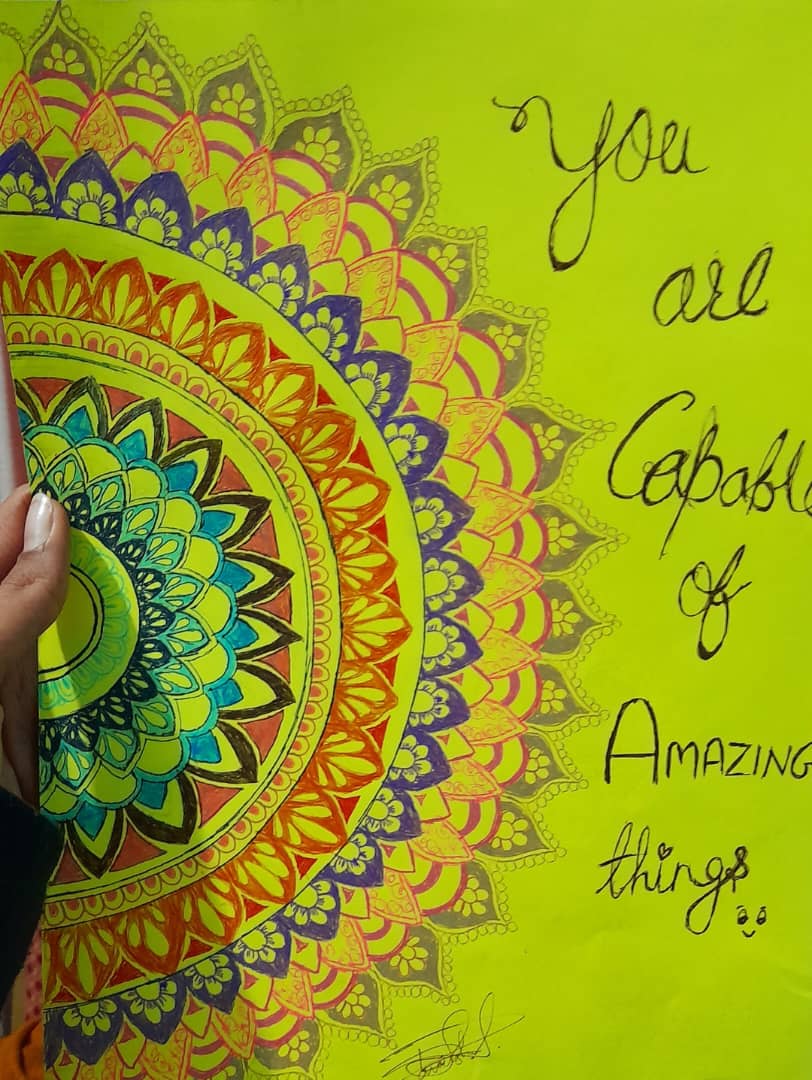 You
are
Capable
of
AMAZING
things